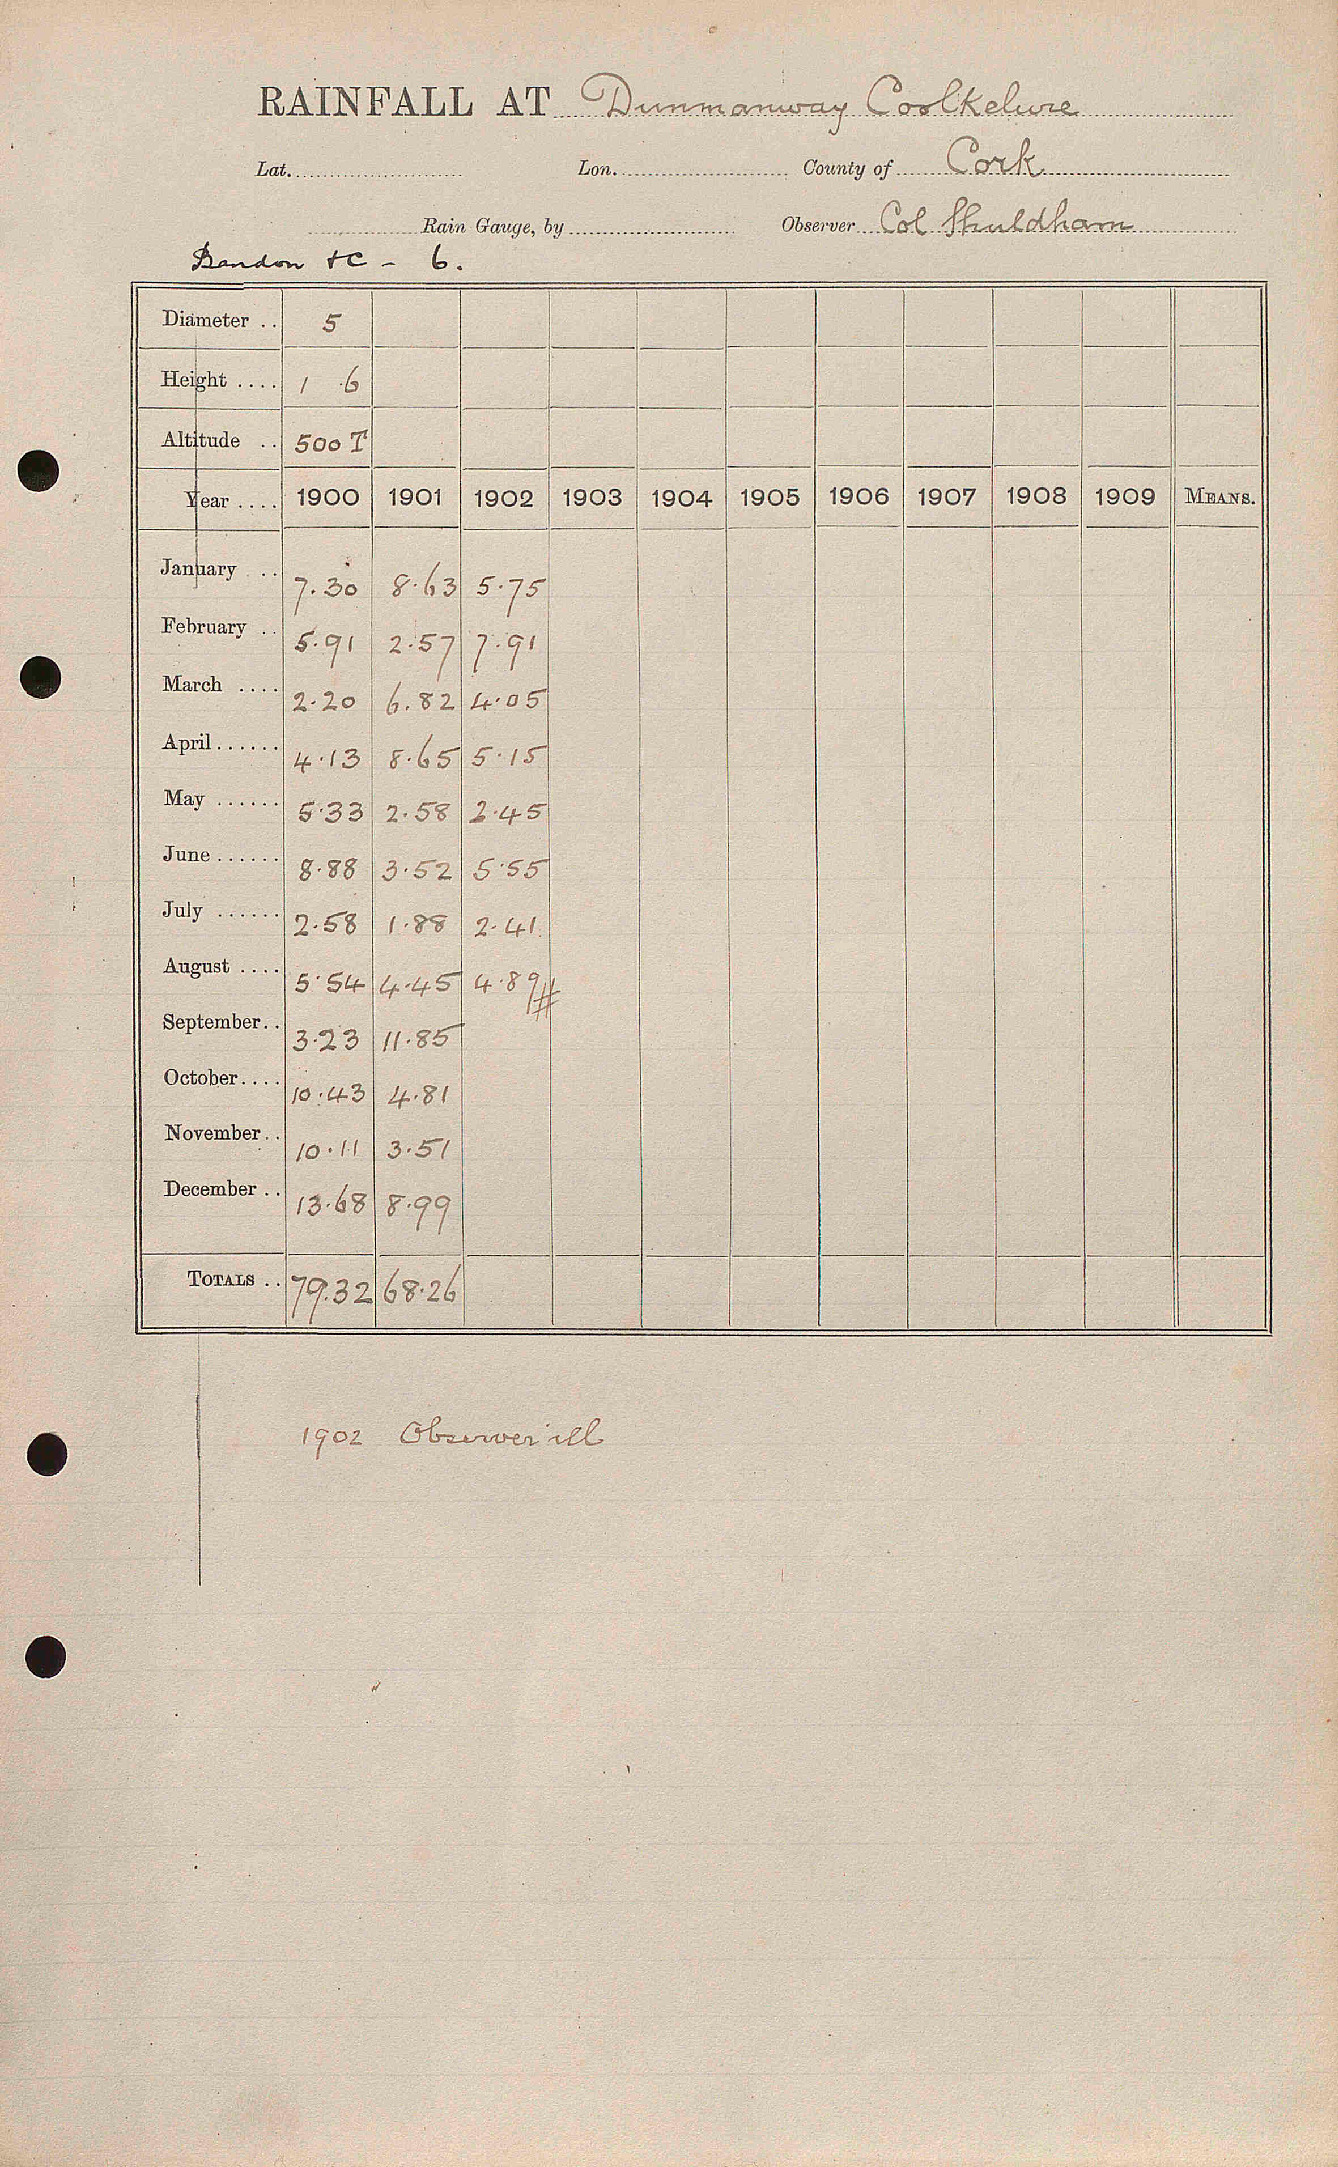 RAINFALL AT Dunmanway Coolkelure
Lat. Lon. County of Cork
Rain Gauge, by Observer Col Shuldham
Bandon &c - 6.
Diameter .. 5
Height .... 1 6
Altitude .. 500 T
Year .... 1900 1901 1902 1903 1904 1905 1906 1907 1908 1909 MEANS.
January .. 7.30 8.63 5.75
February .. 5.91 2.57 7.91
March .... 2.20 6.82 4.05
April...... 4.13 8.65 5.15
May ...... 5.33 2.58 2.45
June...... 8.88 3.52 5.55
July ...... 2.58 1.88 2.41
August .... 5.54 4.45 4.89#
September.. 3.23 11.85
October.... 10.43 4.81
November.. 10.11 3.51
December .. 13.68 8.99
TOTALS .. 79.32 68.26
1902 Observer ill